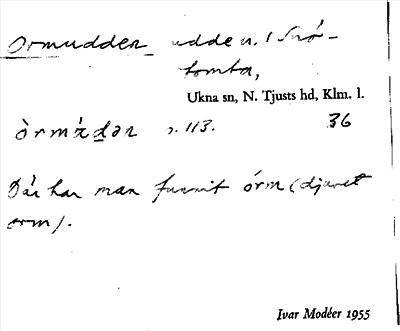 Ormudden udde n. I Snö-
tomta,
Ukna sn, N. Tjusts hd, Klm. l.
s. 113. 36
Där har man funnit órm (djuret
orm).
Ivar Modéer 1955